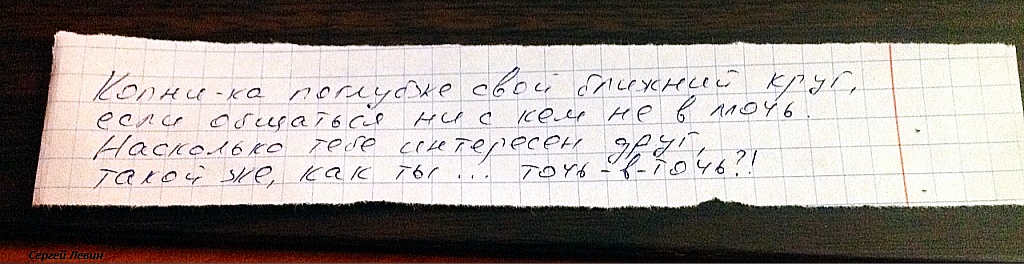 Копни-ка поглубже свой ближний круг,
если общаться ни с кем не в мочь.
Насколько тебе интересен друг,
такой же, как ты... точь-в-точь?!
Сергей Левин